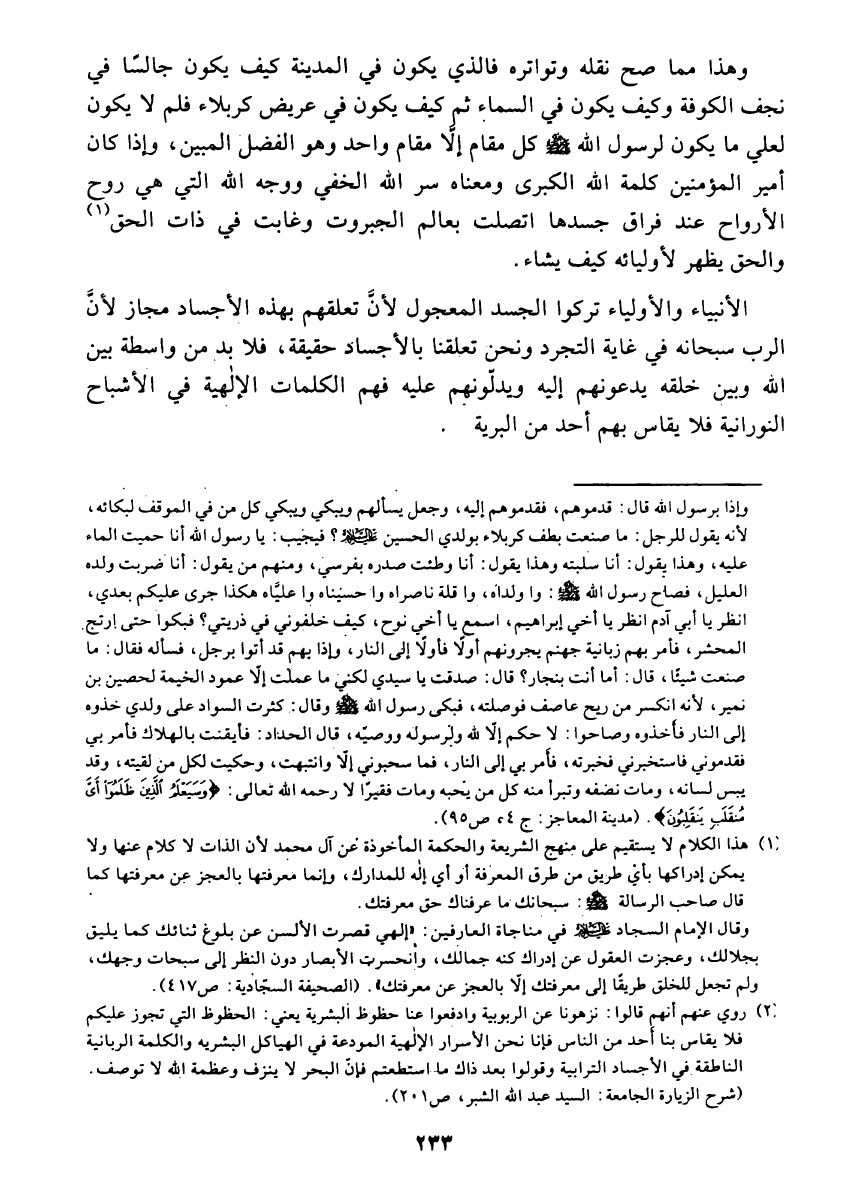 وهذا مما صح نقله وتواتره فالذي يكون في المدينة كيف يكون جالسًا في
نجف الكوفة وكيف يكون في السماء ثم كيف يكون في عريض كربلاء فلم لا يكون
لعلي ما يكون لرسول الله ﷺ كل مقام إلَّا مقام واحد وهو الفضل المبين، وإذا كان
أمير المؤمنين كلمة الله الكبرى ومعناه سر الله الخفي ووجه الله التي هي روح
الأرواح عند فراق جسدها اتصلت بعالم الجبروت وغابت في ذات الحق(١)
والحق يظهر لأوليائه كيف يشاء.
الأنبياء والأولياء تركوا الجسد المعجول لأنَّ تعلقهم بهذه الأجساد مجاز لأنَّ
الرب سبحانه في غاية التجرد ونحن تعلقنا بالأجساد حقيقة، فلا بد من واسطة بين
الله وبين خلقه يدعونهم إليه ويدلّونهم عليه فهم الكلمات الإلٰهية في الأشباح
النورانية فلا يقاس بهم أحد من البرية .
وإذا برسول الله قال: قدموهم، فقدموهم إليه، وجعل يسألهم ويبكي ويبكي كل من في الموقف لبكائه،
لأنه يقول للرجل: ما صنعت بطف كربلاء بولدي الحسين عليه السلام؟ فيجيب: يا رسول الله أنا حميت الماء
عليه، وهذا يقول: أنا سلبته وهذا يقول: أنا وطئت صدره بفرسي، ومنهم من يقول: أنا ضربت ولده
العليل، فصاح رسول الله ﷺ: وا ولداه، وا قلة ناصراه وا حسيناه وا عليَّاه هكذا جرى عليكم بعدي،
انظر يا أبي آدم انظر يا أخي إبراهيم، اسمع يا أخي نوح، كيف خلفوني في ذريتي؟ فبكوا حتى ارتج
المحشر، فأمر بهم زبانية جهنم يجرونهم أولًا فأولًا إلى النار، وإذا بهم قد أتوا برجل، فسأله فقال: ما
صنعت شيئًا، قال: أما أنت بنجار؟ قال: صدقت يا سيدي لكني ما عملت إلّا عمود الخيمة لحصين بن
نمير، لأنه انكسر من ريح عاصف فوصلته، فبكى رسول الله ﷺ وقال: كثرت السواد على ولدي خذوه
إلى النار فأخذوه وصاحوا: لا حكم إلّا لله ولرسوله ووصيّه، قال الحداد: فأيقنت بالهلاك فأمر بي
فقدموني فاستخبرني فخبرته، فأمر بي إلى النار، فما سحبوني إلّا وانتبهت، وحكيت لكل من لقيته، وقد
يبس لسانه، ومات نصفه وتبرأ منه كل من يحبه ومات فقيرًا لا رحمه الله تعالى: ﴿وَسَيَعْلَمُ ٱلَّذِينَ ظَلَمُوٓاْ أَىَّ
مُنقَلَبٍ يَنقَلِبُونَ﴾. (مدينة المعاجز: ج ٤، ص٩٥).
(١) هذا الكلام لا يستقيم على منهج الشريعة والحكمة المأخوذة عن آل محمد لأن الذات لا كلام عنها ولا
يمكن إدراكها بأي طريق من طرق المعرفة أو أي إلٰه للمدارك، وإنما معرفتها بالعجز عن معرفتها كما
قال صاحب الرسالة ﷺ: سبحانك ما عرفناك حق معرفتك.
وقال الإمام السجاد عليه السلام في مناجاة العارفين: «إلهي قصرت الألسن عن بلوغ ثنائك كما يليق
بجلالك، وعجزت العقول عن إدراك كنه جمالك، وانحسرت الأبصار دون النظر إلى سبحات وجهك،
ولم تجعل للخلق طريقًا إلى معرفتك إلّا بالعجز عن معرفتك». (الصحيفة السجّادية: ص٤١٧).
(٢) روي عنهم أنهم قالوا: نزهونا عن الربوبية وادفعوا عنا حظوظ البشرية يعني: الحظوظ التي تجوز عليكم
فلا يقاس بنا أحد من الناس فإنا نحن الأسرار الإلٰهية المودعة في الهياكل البشريه والكلمة الربانية
الناطقة في الأجساد الترابية وقولوا بعد ذاك ما استطعتم فإنّ البحر لا ينزف وعظمة الله لا توصف.
(شرح الزيارة الجامعة: السيد عبد الله الشبر، ص٢٠١).
٢٣٣